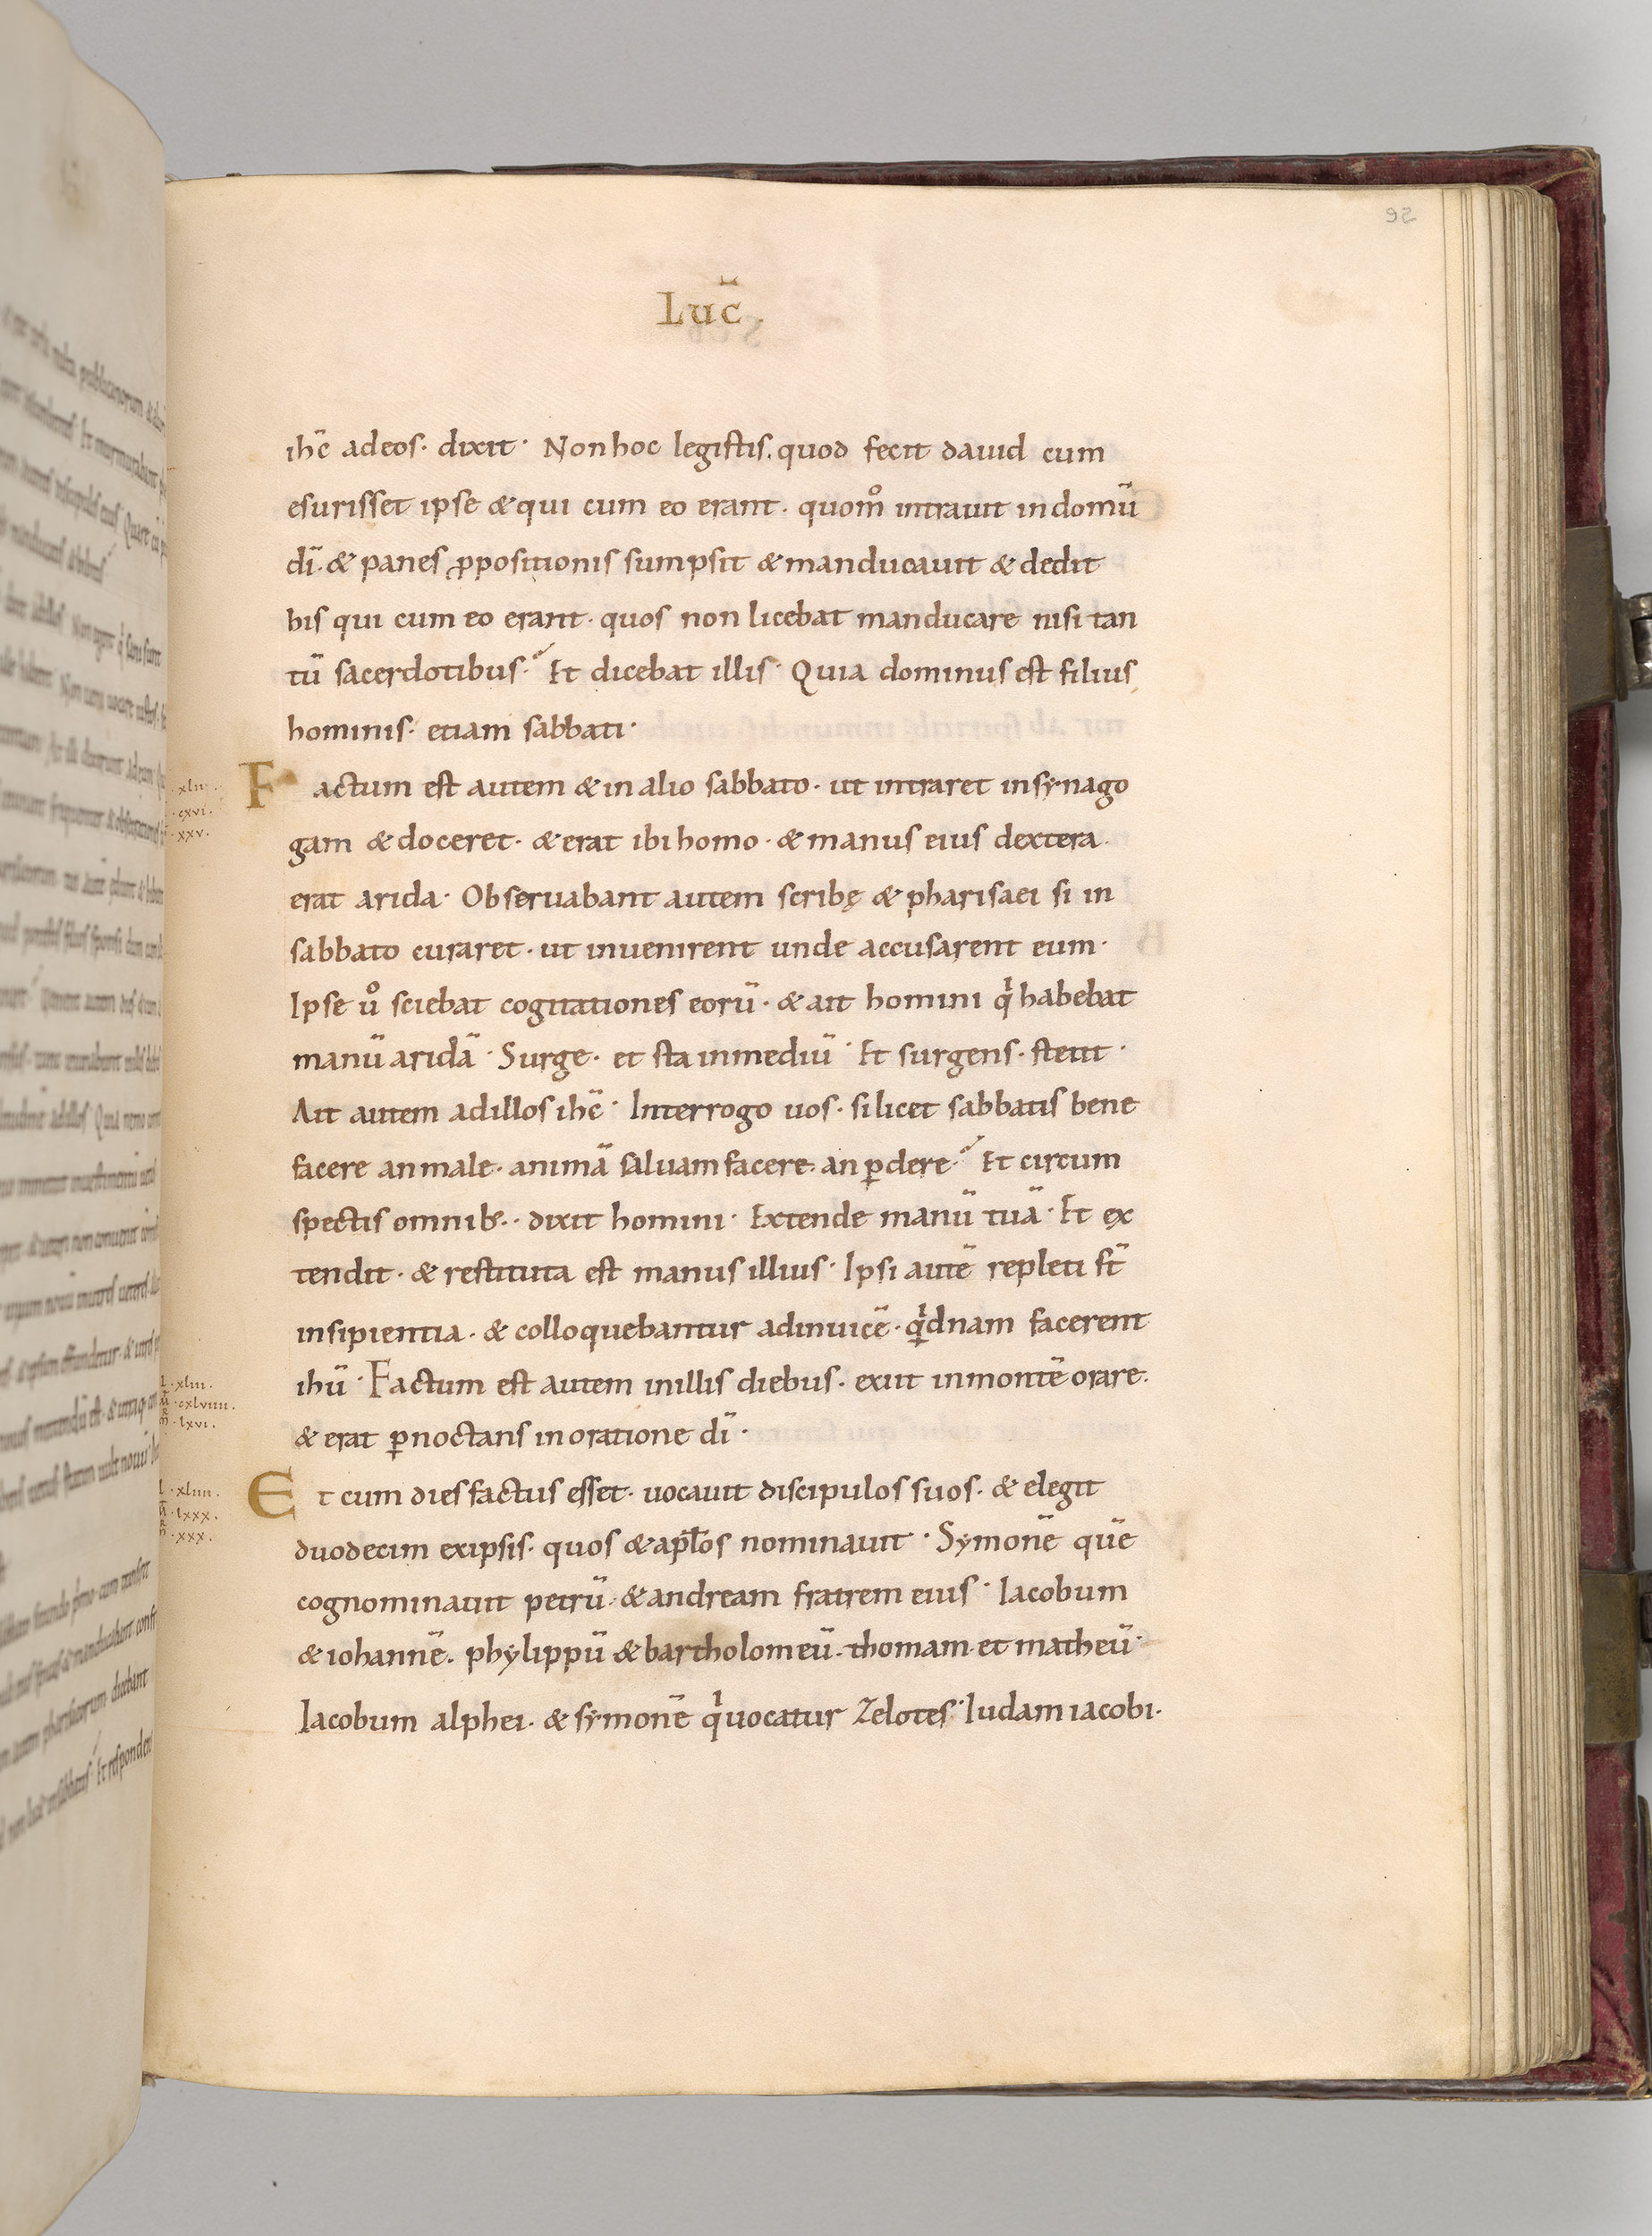 92
Luc̄
ihc̄ adeos· dixit· Nonhoc legistis· quod fecit dauid cum
esurisset ipse &qui cum eo erant· quomo̊ intrauit indomū
dī· & panes ꝓpositionis sumpsit &manducauit & dedit
his qui cum eo erant· quos non licebat manducare nisi tan
tū sacerdotibus· Et dicebat illis· Quia dominus est filius
hominis· etiam sabbati·
Factum est autem &inalio sabbato· ut intraret insynago
gam &doceret· &erat ibi homo· &manus eius dextera
erat arida· Obseruabant autem scribę & pharisaei si in
sabbato curaret· ut inuenirent unde accusarent eum·
Ipse uͦ sciebat cogitationes eorū· & ait homini qͥ habebat
manū aridā· Surge· et sta inmediū· Et surgens· stetit·
Ait autem adillos ihc̄· Interrogo uos· silicet sabbatis bene
facere anmale· animā saluamfacere an ꝑdere· Et circum
spectis omnib;· dixit homini· Extende manū tuā· Et ex
tendit· & restituta est manus illius· Ipsi autē repleti st̄
insipientia· & colloquebantur adinuicē· qͥdnam facerent
ihū· Factum est autem inillis diebus· exiit inmontē orare·
& erat ꝑnoctans inoratione dī·
Et cum dies factus esset· uocauit discipulos suos· & elegit
duodecim exipsis· quos &apłos nominauit· Symonē quē
cognominauit petrū· &andream fratrem eius· Iacobum
&iohannē· phylippū &bartholomeū· thomam et matheū·
Iacobum alphei· & symonē qͥ uocatur Zelotes· Iudam iacobi·
·xlii·
·cxvi·
·xxv·
·xliii·
·cxlviiii·
·lxvi·
·xliiii·
·lxxx·
·xxx·